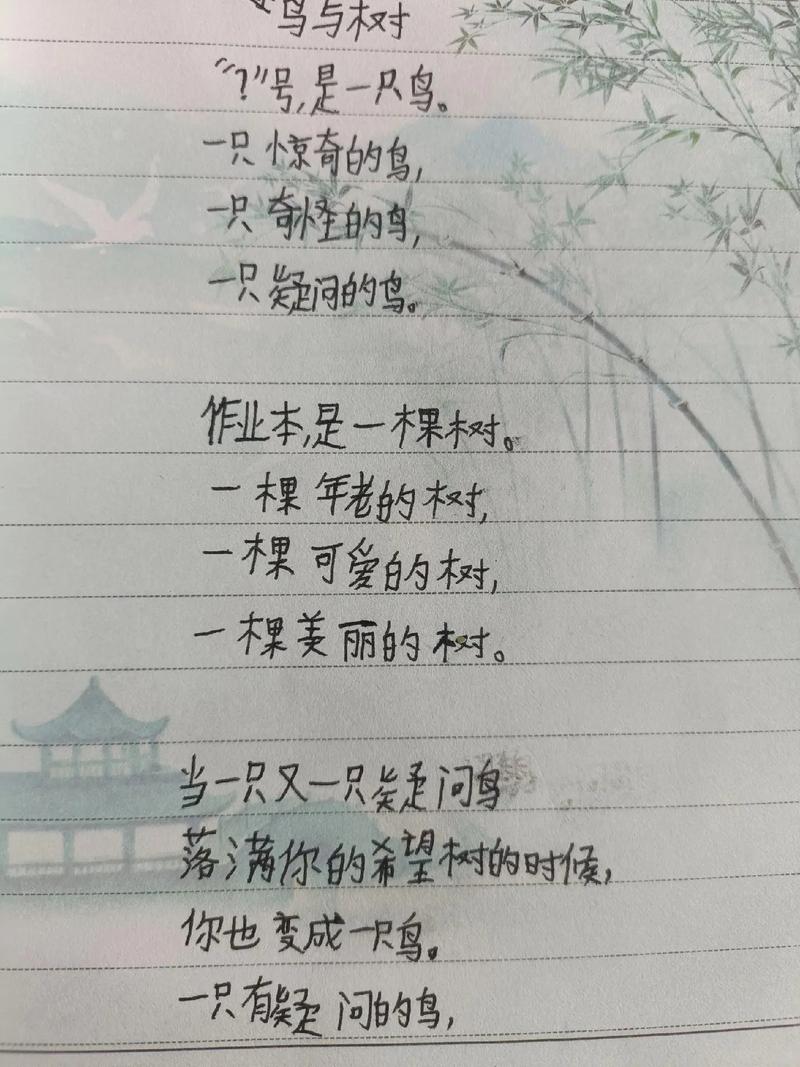 鸟与树
“?”号,是一只鸟。
一只惊奇的鸟,
一只奇怪的鸟,
一只疑问的鸟。
作业本,是一棵树。
一棵年老的树,
一棵可爱的树,
一棵美丽的树。
当一只又一只疑问鸟
落满你的希望树的时候,
你也变成一只鸟。
一只有疑问的鸟,